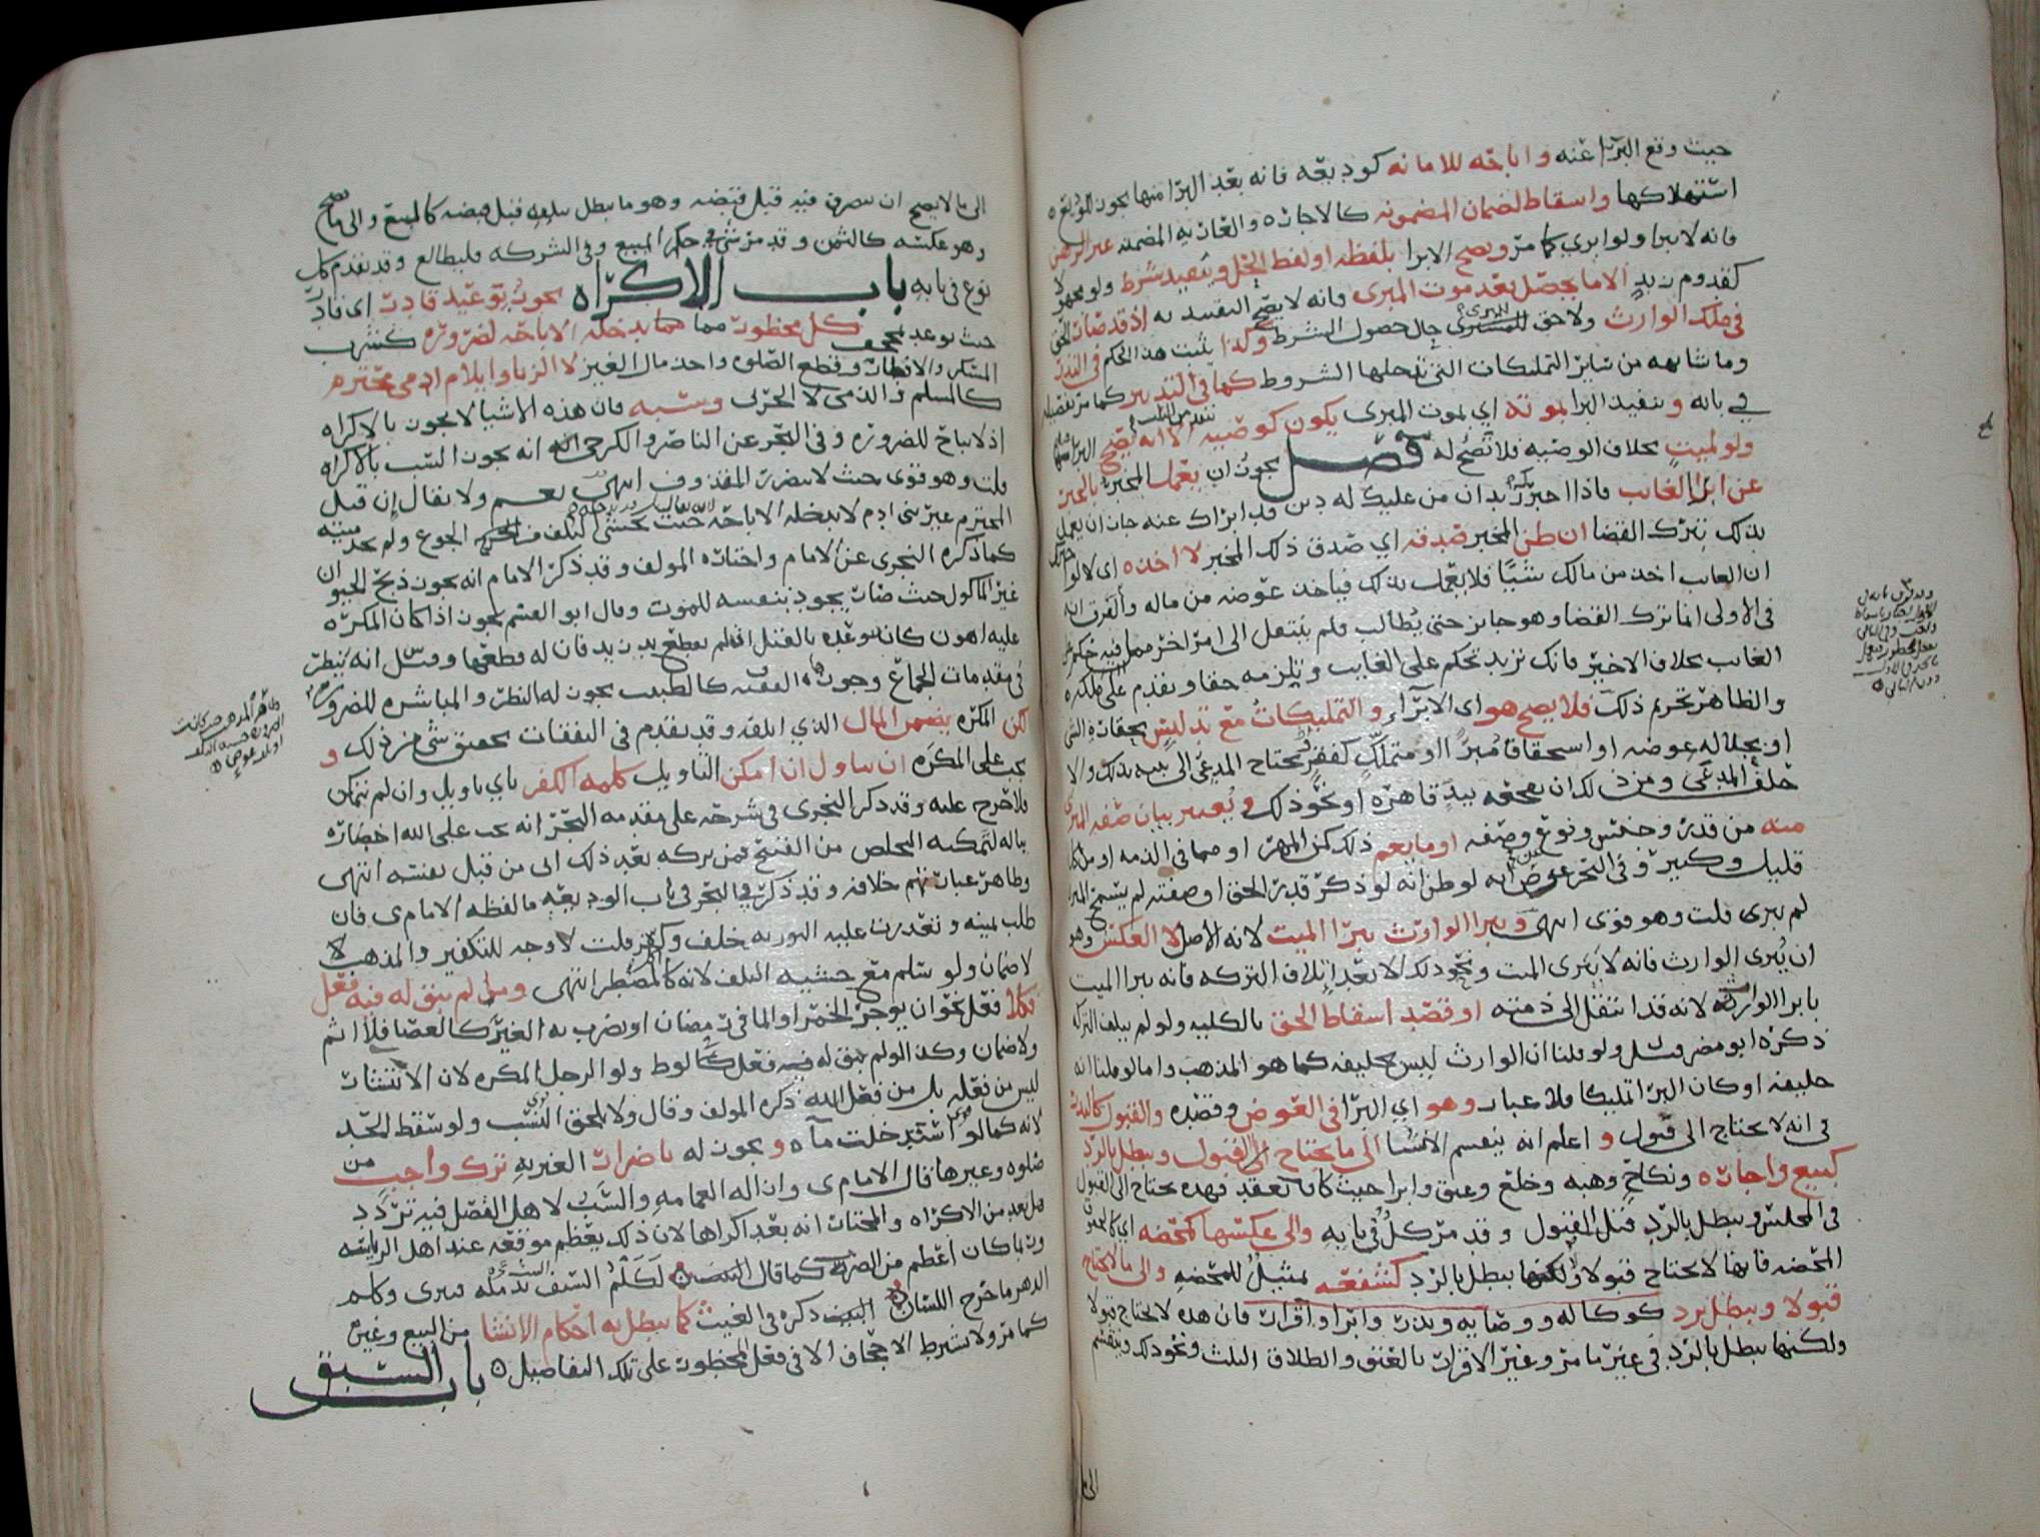 حيث وقع البرا عنه واباحه للامانه كوديعه فانه بعد البرا منها يجوز للوديع
استهلاكها واسقاط لضمان المضمونه كالاجاره والعاريه المضمنه غير الرهن
فانه لا يبرا ولو ابري كما مر ويصح الابرا بلفظه او لفظ الحل ويتقيد بشرط ولو مجهولا
كقدوم زيد الا ما يحصل بعد موت المبرى فانه لا يصح التقييد به اذ قد صار الحق
في ملك الوارث ولا حق للمبري حال حصول الشرط وكذا يثبت هذا الحكم في النذر
وما شابهه من سائر التمليكات التي تدخلها الشروط كما في التدبير كما مر تفصيله
في بابه ويتقيد البرا بموته اي بموت المبرى يكون كوصيه الا انه يصح البرا
ولو لميت بخلاف الوصيه فلا تصح له فصل يجوز ان يعمل المخبر بالخبر
عن ابرا الغائب فاذا اخبر زيد ان من عليك له دين قد ابراك عنه جاز ان يعمل
بذلك بترك القضا ان ظن المخبر صدقه اي صدق ذلك المخبر لا اخذه اى لا لو اخبرك
ان الغايب اخذ من مالك شيئا فلا يعمل بذلك فياخذ عوضه من ماله والفرق انه
في الاولى انما ترك القضا وهو جايز حتى يطالب فلم ينتقل الى امر اخر مما فيه حكم على
الغائب بخلاف الاخير فانك تريد تحكم على الغايب ويلزمه حقا وتقدم على ملكه
والظاهر تحريم ذلك فلا يصح هو اى الابراء والتمليكات مع تدليس بحقارة الشي
او بجلاله عوضه او استحقاق مبرا او متملك كفقر يحتاج المدعي الى بينه بذلك والا
حلف المدعى ومن ذلك ان يمحقه بيد قاهره او نحو ذلك ويعتبر بيان صفه المبرى
منه من قدر وجنس ونوع وصفه او ما يعم ذلك كمن المهر او مما في الذمه او من كل
قليل وكثير وفي البحر عن ض انه لو ظن انه لو ذكر قدر الحق او صفته لم يسمح المبري
لم يبرى قلت وهو قوى انتهى ويبرا الوارث يبرا الميت لانه الاصل لا العكس وهو
ان يبرى الوارث فانه لا يبرى الميت ونحو ذلك الا بعد اتلاف التركه فانه يبرا الميت
بابرا الوارث لانه قد انتقل الى ذمته او قصد اسقاط الحق بالكليه ولو لم يتلف التركه
ذكره ابو مضر وقيل ولو قلنا ان الوارث ليس بخليفه كما هو المذهب واما لو قلنا انه
خليفه او كان البرا تمليكا فلا عبار وهو اي البرا في العوض وقصده والقبول كالبيع
في انه لا يحتاج الى قبول و اعلم انه ينقسم الانشا الى ما يحتاج الى القبول ويبطل بالرد
كبيع واجاره ونكاح وهبه وخلع وعتق وابرا حيث كان بعقد فهذه تحتاج الى القبول
في المجلس ويبطل بالرد قبل القبول وقد مر كل في بابه والى عكسها كمحضه
المحضه فانها لا يحتاج قبولا ولكنها يبطل بالرد كشفعه تمثيل للمحضه والى ما لا يحتاج
قبولا ويبطل برد كوكاله ووصايه ونذر وابرا واقرار فان هذه لا يحتاج قبولا
ولكنها يبطل بالرد في غير ما مر وغير الاقرار بالعتق والطلاق الثلث ونحو ذلك وينقسم
الى ما
الى ما لا يصح ان يتصرف فيه قبل قبضه وهو ما يبطل بتلفه قبل قبضه كالمبيع والى ما يصح
وهو عكسه كالثمن وقد مر شي في حكم المبيع وفي الشركه فليطالع وقد تقدم كل
نوع في بابه باب الاكراه يجوز بتوعيد قادر اى قادر
حيث توعد بمجحف كل محظور مما يدخله الاباحه لضروره كشرب
المسكر والافطار وقطع الصلوه واخذ مال الغير لا الزنا وايلام ادمى محترم
كالمسلم والذمى لا الحربى وسبه فان هذه الاشيا لا يجوز بالاكراه
اذ لا يباح للضروره وفى البحر عن الناصر والكرجى انه يجوز السب بالاكراه
قلت وهو قوى بحيث لا يتضرر المقذوف انتهى نعم ولا يقال ان قتل
المحترم غير بنى ادم لا يدخله الاباحه حيث يخشى التلف من الجوع ولم يجد ميته
كما ذكره النجرى عن الامام واختاره المولف وقد ذكر الامام انه يجوز ذبح الحيوان
غير الماكول حيث صار يجود بنفسه للموت وقال ابو القسم يجوز اذا كان المكره
عليه اهون كان توعده بالقتل ان لم يقطع يد زيد فان له قطعها وقيل انه ينظر
في مقدمات الجماع وجوز الفقيه كالطبيب يجوز له النظر والمباشره للضروره
لكن المكره يضمن المال الذي اتلفه وقد تقدم في النفقات تحقيق شي من ذلك و
يجب على المكره ان يتاول ان امكن التاويل كلمه الكفر باي تاويل وان لم يتمكن
فلا حرج عليه وقد ذكر النجرى في شرحه على مقدمه البحر انه يجب على الله اخطاره
بباله لتمكنه التخلص من القبيح فمن تركه بعد ذلك اتى من قبل نفسه انتهى
وظاهر عباراتهم خلافه وقد ذكر في البحر في باب الوديعه ما لفظه الامام ى فان
طلب يمينه وتعذرت عليه التوريه حلف وكفر قلت لا وجه للتكفير والمذهب لا
لا ضمان ولو سلم مع خشيه التلف لانه كالمضطر انتهى وما لم يبق له فيه فعل
فكلا فعل نحو ان يوجر الخمر او الما في رمضان او يضرب به الغير كالعصا فلا اثم
ولا ضمان وكذا لو لم يبق له فيه فعل كالوط ولو الرجل المكره لان الانتشار
ليس من فعله بل من فعل الله ذكره المولف وقال ولا يلحق النسب ولو سقط الحد
لانه كما لو استدخلت ماه ويجوز له باضرار الغير به ترك واجب من
صلوه وغيرها قال الامام ى وازاله العمامه والسب لاهل الفضل فيه تردد
هل يعد من الاكراه والمختار انه يعد اكراها لان ذلك يعظم موقعه عند اهل الرياسه
وربما كان اعظم من الضرب كما قال لكلم السيف تدمله فيبرى وكلم
الدهر ما جرح اللسان ذكره في الغيث كما يبطل به احكام الانشا من البيع وغيره
كما مر ولا يشترط الاجحاف الا في فعل المحظور على تلك التفاصيل باب السبق